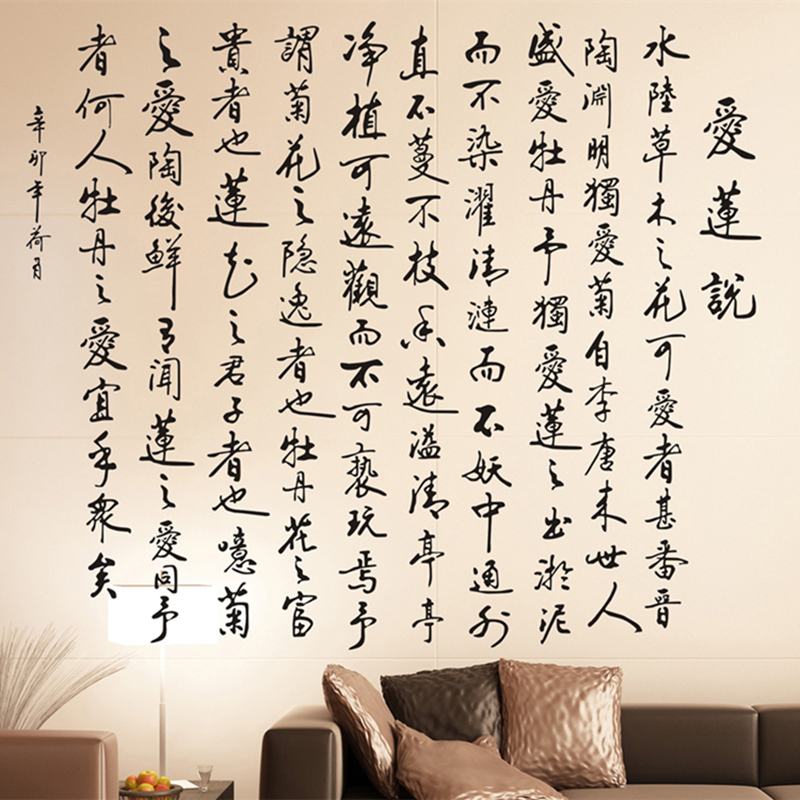 愛蓮說
水陸草木之花可愛者甚番晉
陶淵明獨愛菊自李唐来世人
盛愛牡丹予獨愛蓮之出淤泥
而不染濯清漣而不妖中通外
直不蔓不枝香遠溢清亭亭
净植可遠觀而不可褻玩焉予
謂菊花之隐逸者也牡丹花之富
貴者也蓮花之君子者也噫菊
之愛陶後鮮有聞蓮之愛同予
者何人牡丹之愛宜乎眾矣
辛卯年荷月